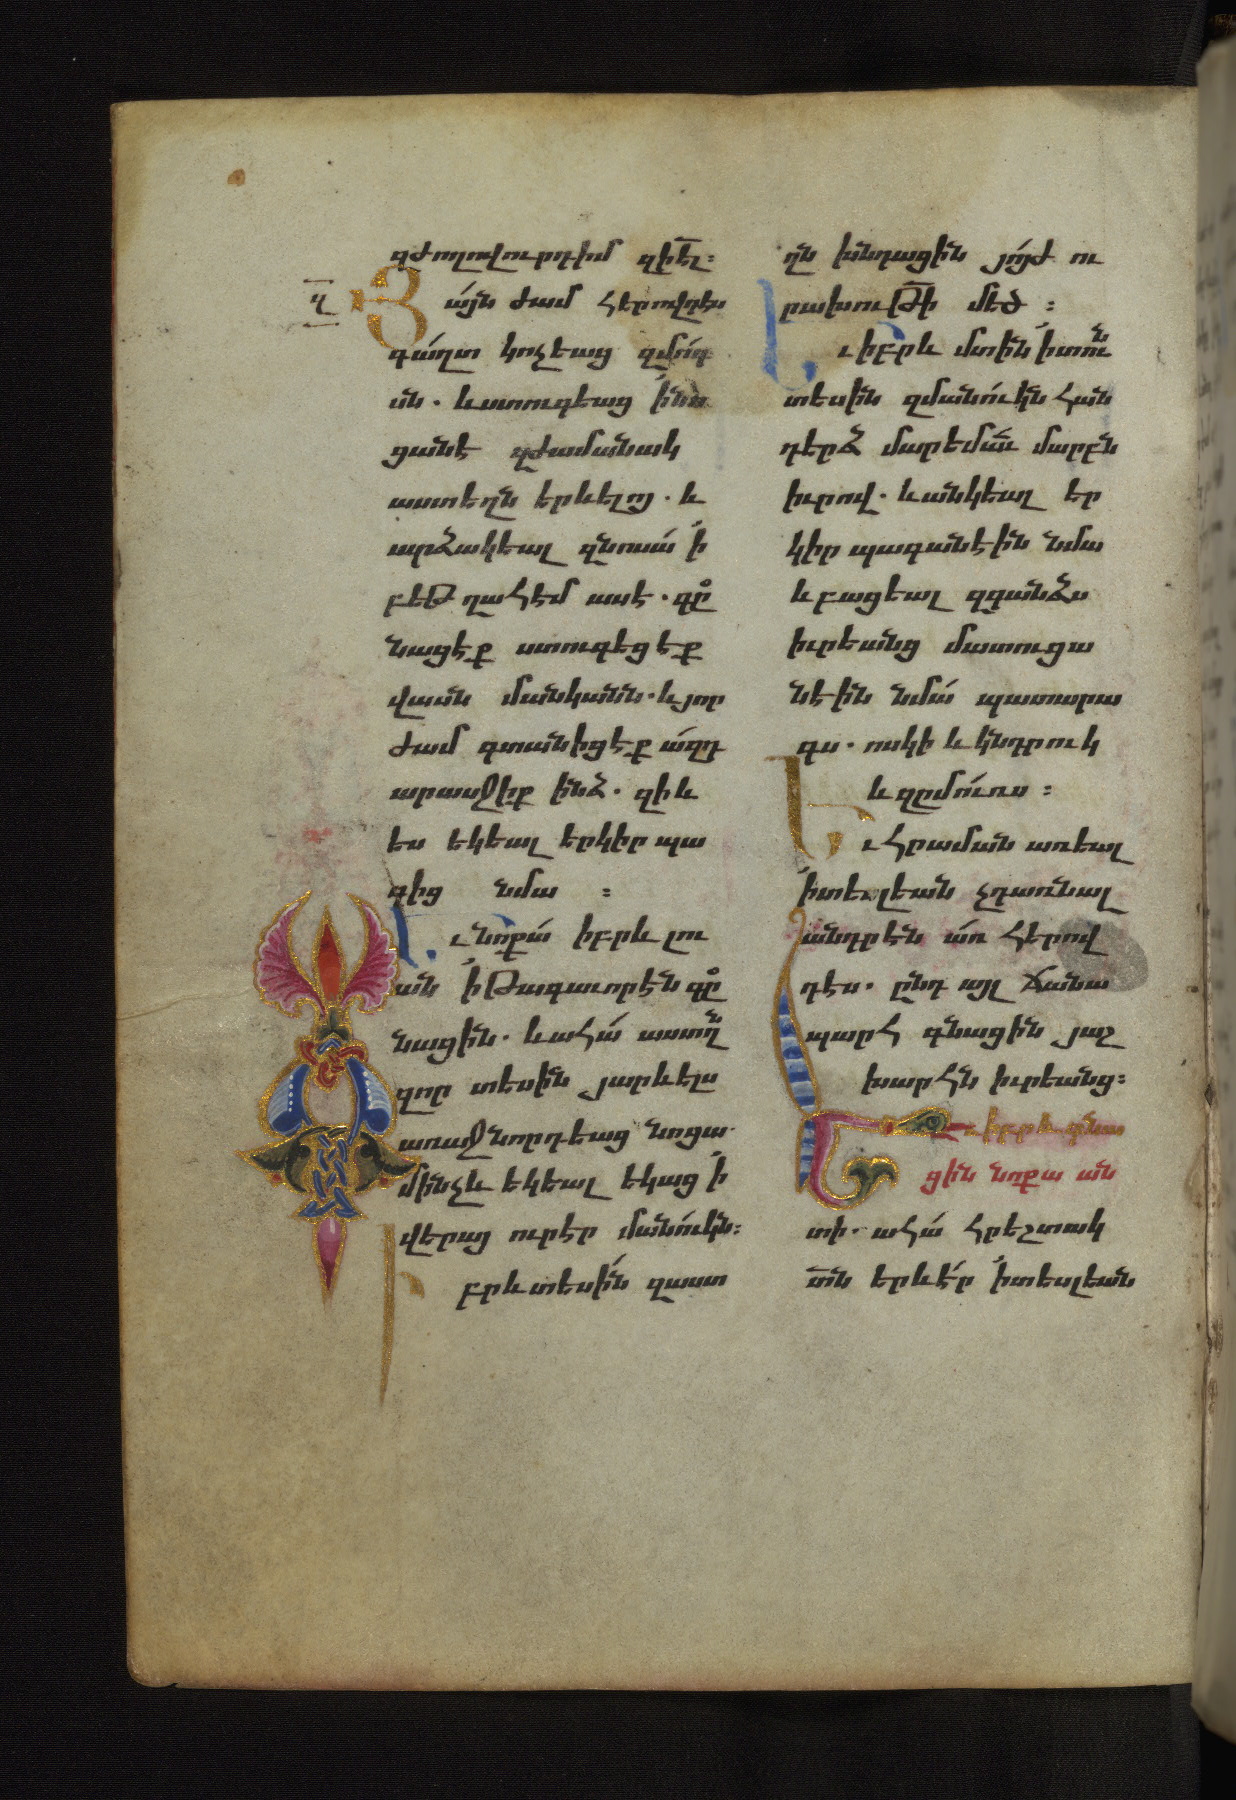 զժողովուրդիմ զիէլ։
Յ այն ժամ հերովդես
գաղտ կոչեաց զմոգ
սն. և ստուգեաց ի նո
ցանէ զժամանակ
աստեղն երևելոյ. և
արձակեալ զնոսա ի
բեթղահէմ ասէ. գը
նացէք ստուգեցէք
վասն մանկանն. և յոր
ժամ գտանիցէք ազդ
արասջիք ինձ. զի և
ես եկեալ երկիր պա
գից նմա ։
Եւ նոքա իբրև լու
ան ի թագաւորէն գը
նացին. և ահա աստղն
զոր տեսին յարևելս
առաջնորդեաց նոցա
մինչև եկեալ եկաց ի
վերայ ուր էր մանուկն։
Իբրև տեսին զաստ
ղն խնդացին յոյժ ու
րախութի մեծ ։
Եւ իբրև մտին ի տուն
տեսին զմանուկն հան
դերձ մարեմաւ մարբն
իւրով. և անկեալ եր
կիր պագանէին նմա
և բացեալ զգանձս
իւրեանց մատուցա
նէին նմա պատարա
գս. ոսկի և կնդրուկ
և զըմուռս ։
Եւ հրաման առեալ
ի տեսլեան չդառնալ
անդրէն առ հերով
դես. ընդ այլ ճանա
պարհ գնացին յաշ
խարհն իւրեանց։
Եւ իբրև գնա
ցին նոքա ան
տի. ահա հրեշտակ
տն երևէր ի տեսլեան